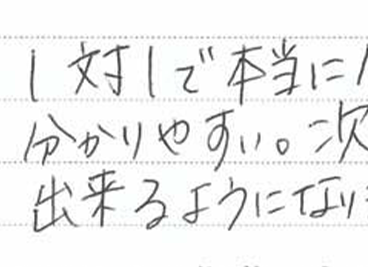 1対1で本当に
分かりやすい。次
出来るようになり